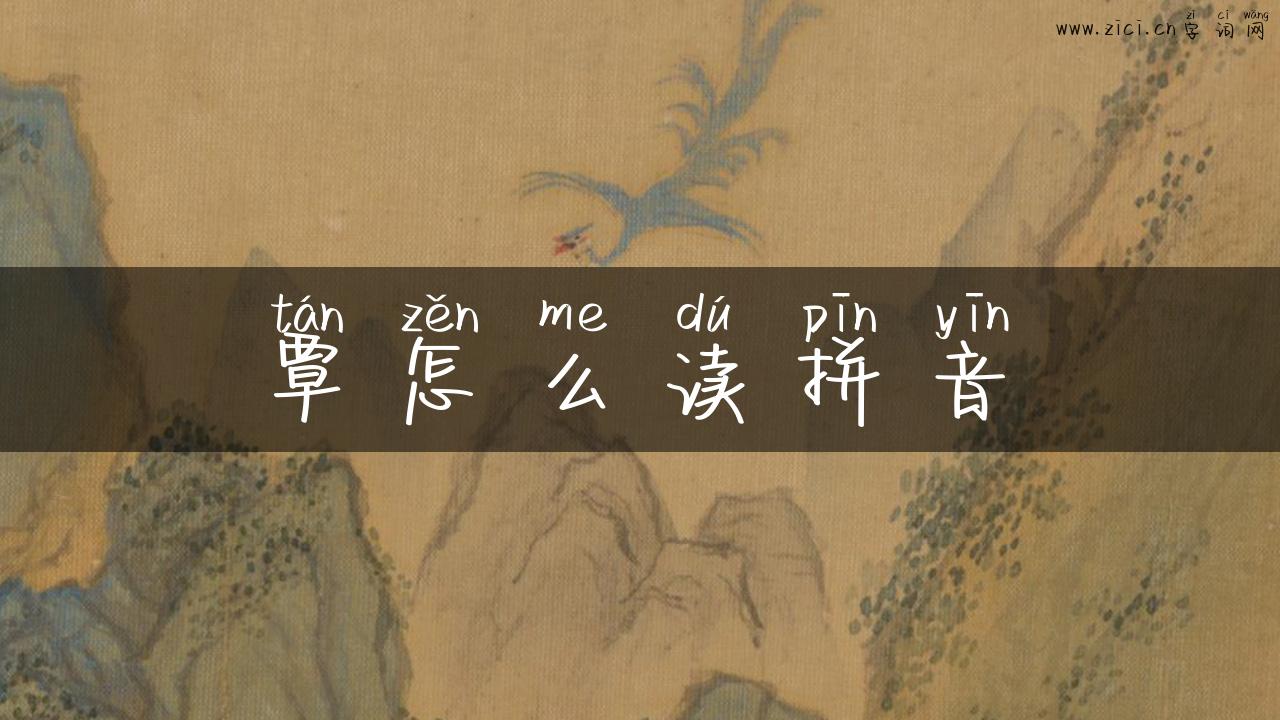 zì cí wǎng
www.zici.cn字词网
tán zěn me dú pīn yīn
覃怎么读拼音